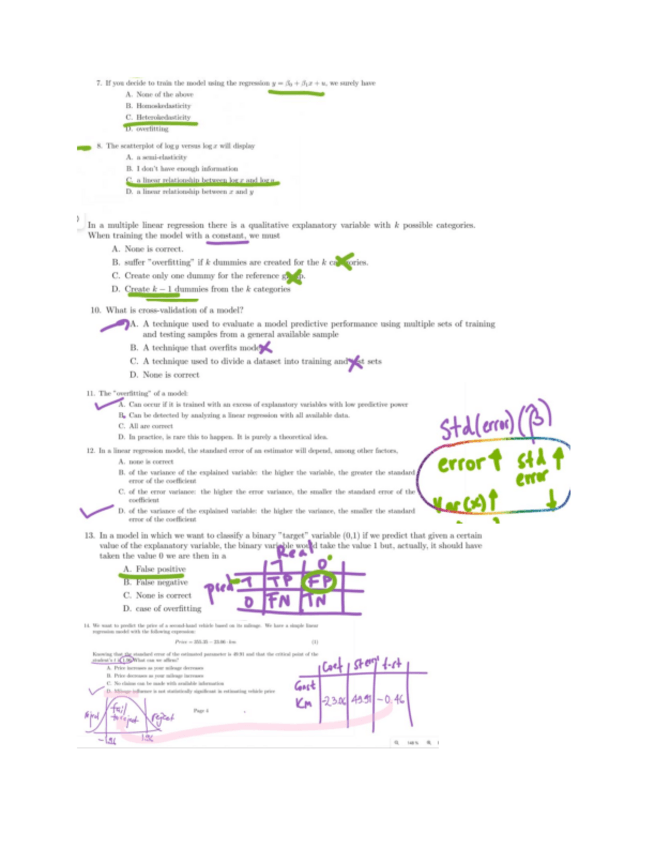 7. If you decide to train the model using the regression y = β₀ + β₁x + u, we surely have
A. None of the above
B. Homoskedasticity
C. Heterokedasticity
D. overfitting
8. The scatterplot of log y versus log x will display
A. a semi-elasticity
B. I don't have enough information
C. a linear relationship between log x and log y
D. a linear relationship between x and y
)
In a multiple linear regression there is a qualitative explanatory variable with k possible categories.
When training the model with a constant, we must
A. None is correct.
B. suffer "overfitting" if k dummies are created for the k categories.
C. Create only one dummy for the reference group.
D. Create k − 1 dummies from the k categories
10. What is cross-validation of a model?
A. A technique used to evaluate a model predictive performance using multiple sets of training
and testing samples from a general available sample
B. A technique that overfits models
C. A technique used to divide a dataset into training and test sets
D. None is correct
11. The "overfitting" of a model:
A. Can occur if it is trained with an excess of explanatory variables with low predictive power
B. Can be detected by analyzing a linear regression with all available data.
C. All are correct
D. In practice, is rare this to happen. It is purely a theoretical idea.
Std(error)(β)
error↑ std↑
error
Var(x)↑ ↓
12. In a linear regression model, the standard error of an estimator will depend, among other factors.
A. none is correct
B. of the variance of the explained variable: the higher the variable, the greater the standard
error of the coefficient
C. of the error variance: the higher the error variance, the smaller the standard error of the
coefficient
D. of the variance of the explained variable: the higher the variance, the smaller the standard
error of the coefficient
13. In a model in which we want to classify a binary "target" variable (0,1) if we predict that given a certain
value of the explanatory variable, the binary variable would take the value 1 but, actually, it should have
taken the value 0 we are then in a
A. False positive
B. False negative
C. None is correct
D. case of overfitting
Real
1 0
Pred 1 TP FP
0 FN TN
14. We want to predict the price of a second-hand vehicle based on its mileage. We have a simple linear
regression model with the following expression:
(1)
Knowing that the standard error of the estimated parameter is 49.91 and that the critical point of the
student's t is 1.96 What can we affirm?
A. Price increases as your mileage decreases
B. Price decreases as your mileage increases
C. No claims can be made with available information
D. Mileage influence is not statistically significant in estimating vehicle price
Coef
Km 49.91 -0.46
fail
to reject
reject
1.96
Page 4